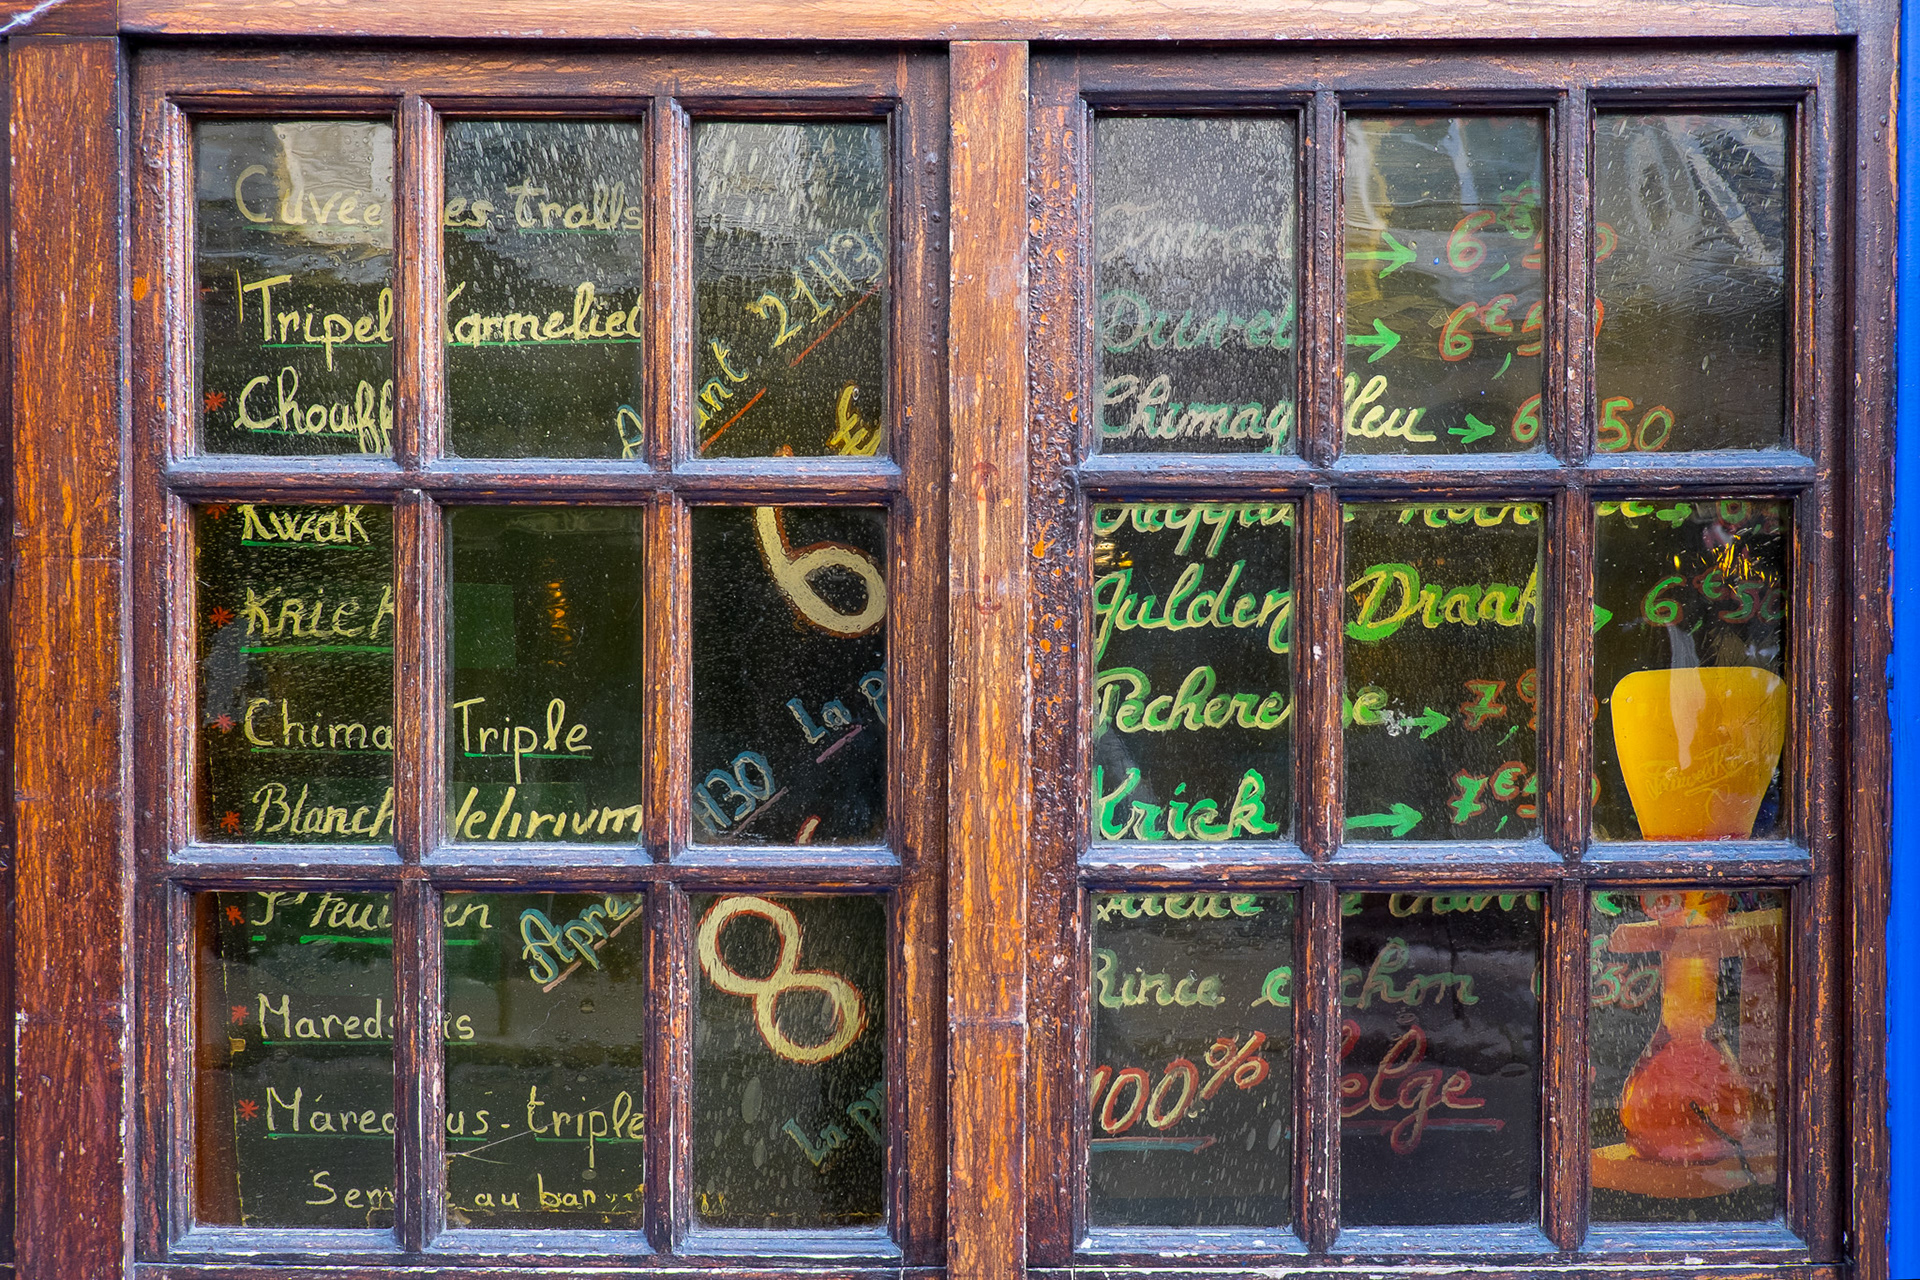 Cuvee es-Trolls
Tripel Karmeliet
Chouff
Kwak
KRIEK
Chima Triple
Blanch delirium
en
Mareds is
Mared us-triple
Se au bar
21H30
ant
€
6
La p
H30
Apre
8
La p
→ 6€,50
Duvel → 6€,5
Chimay Bleu → 6 50
Gulden Draak 6€,50
Pecheres se → 7€
Krick → 7€,5
Rince cochon 50
100% Belge